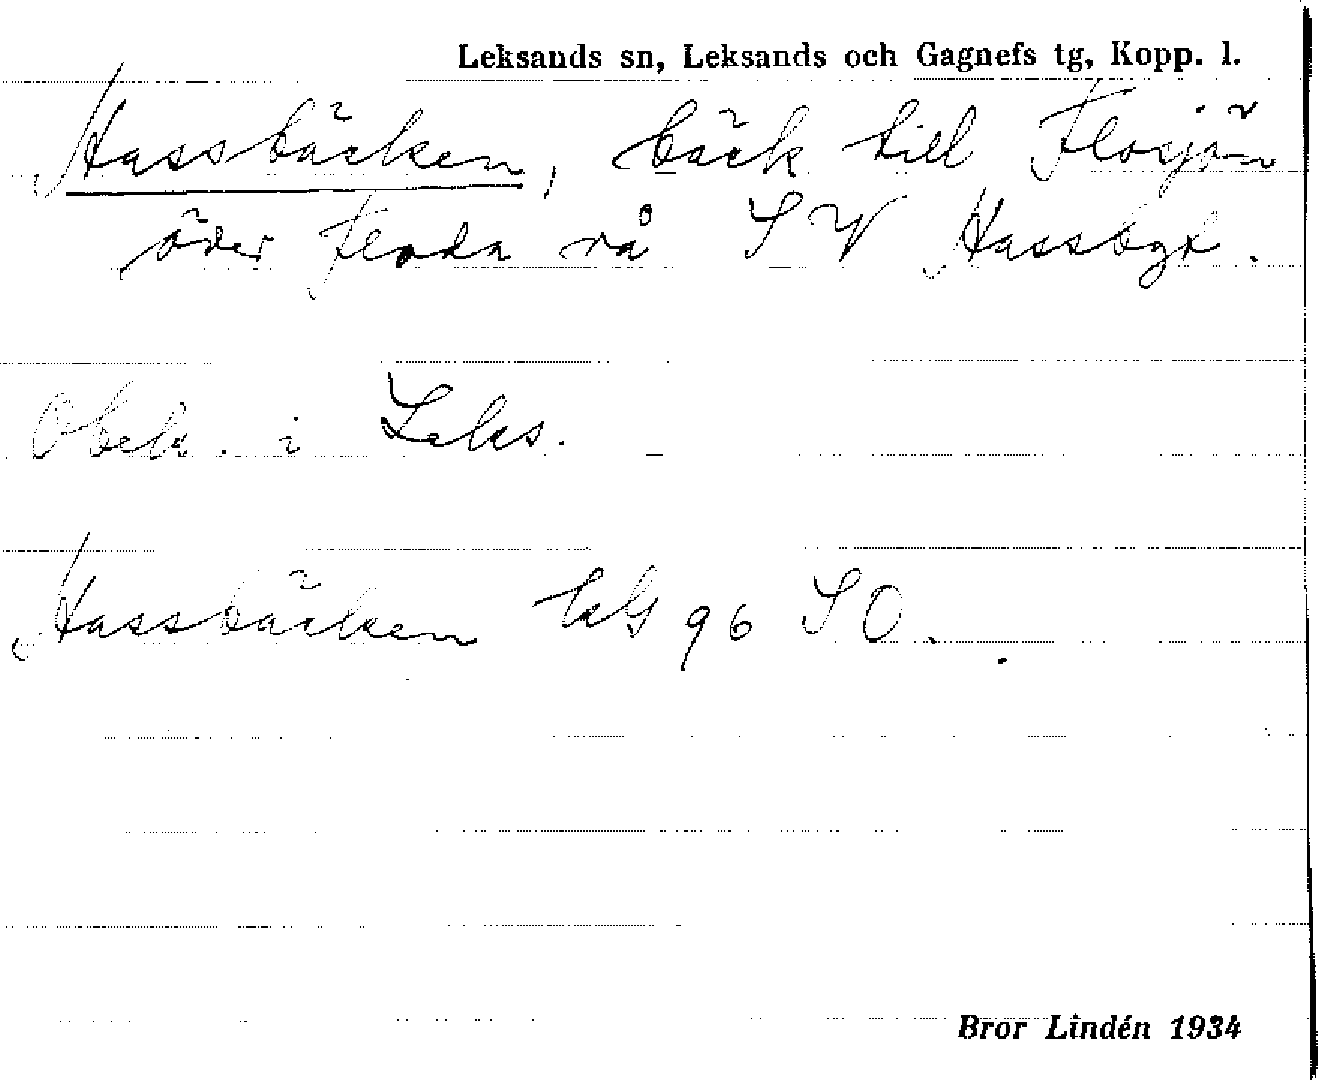 Leksands sn, Leksands och Gagnefs tg, Kopp. l.
Hassbäcken, bäck till Flosjön
över Floda rå S V Hassbgt.
Obek. i Leks.
Hassbäcken kG 96 S O.
Bror Lindén 1934